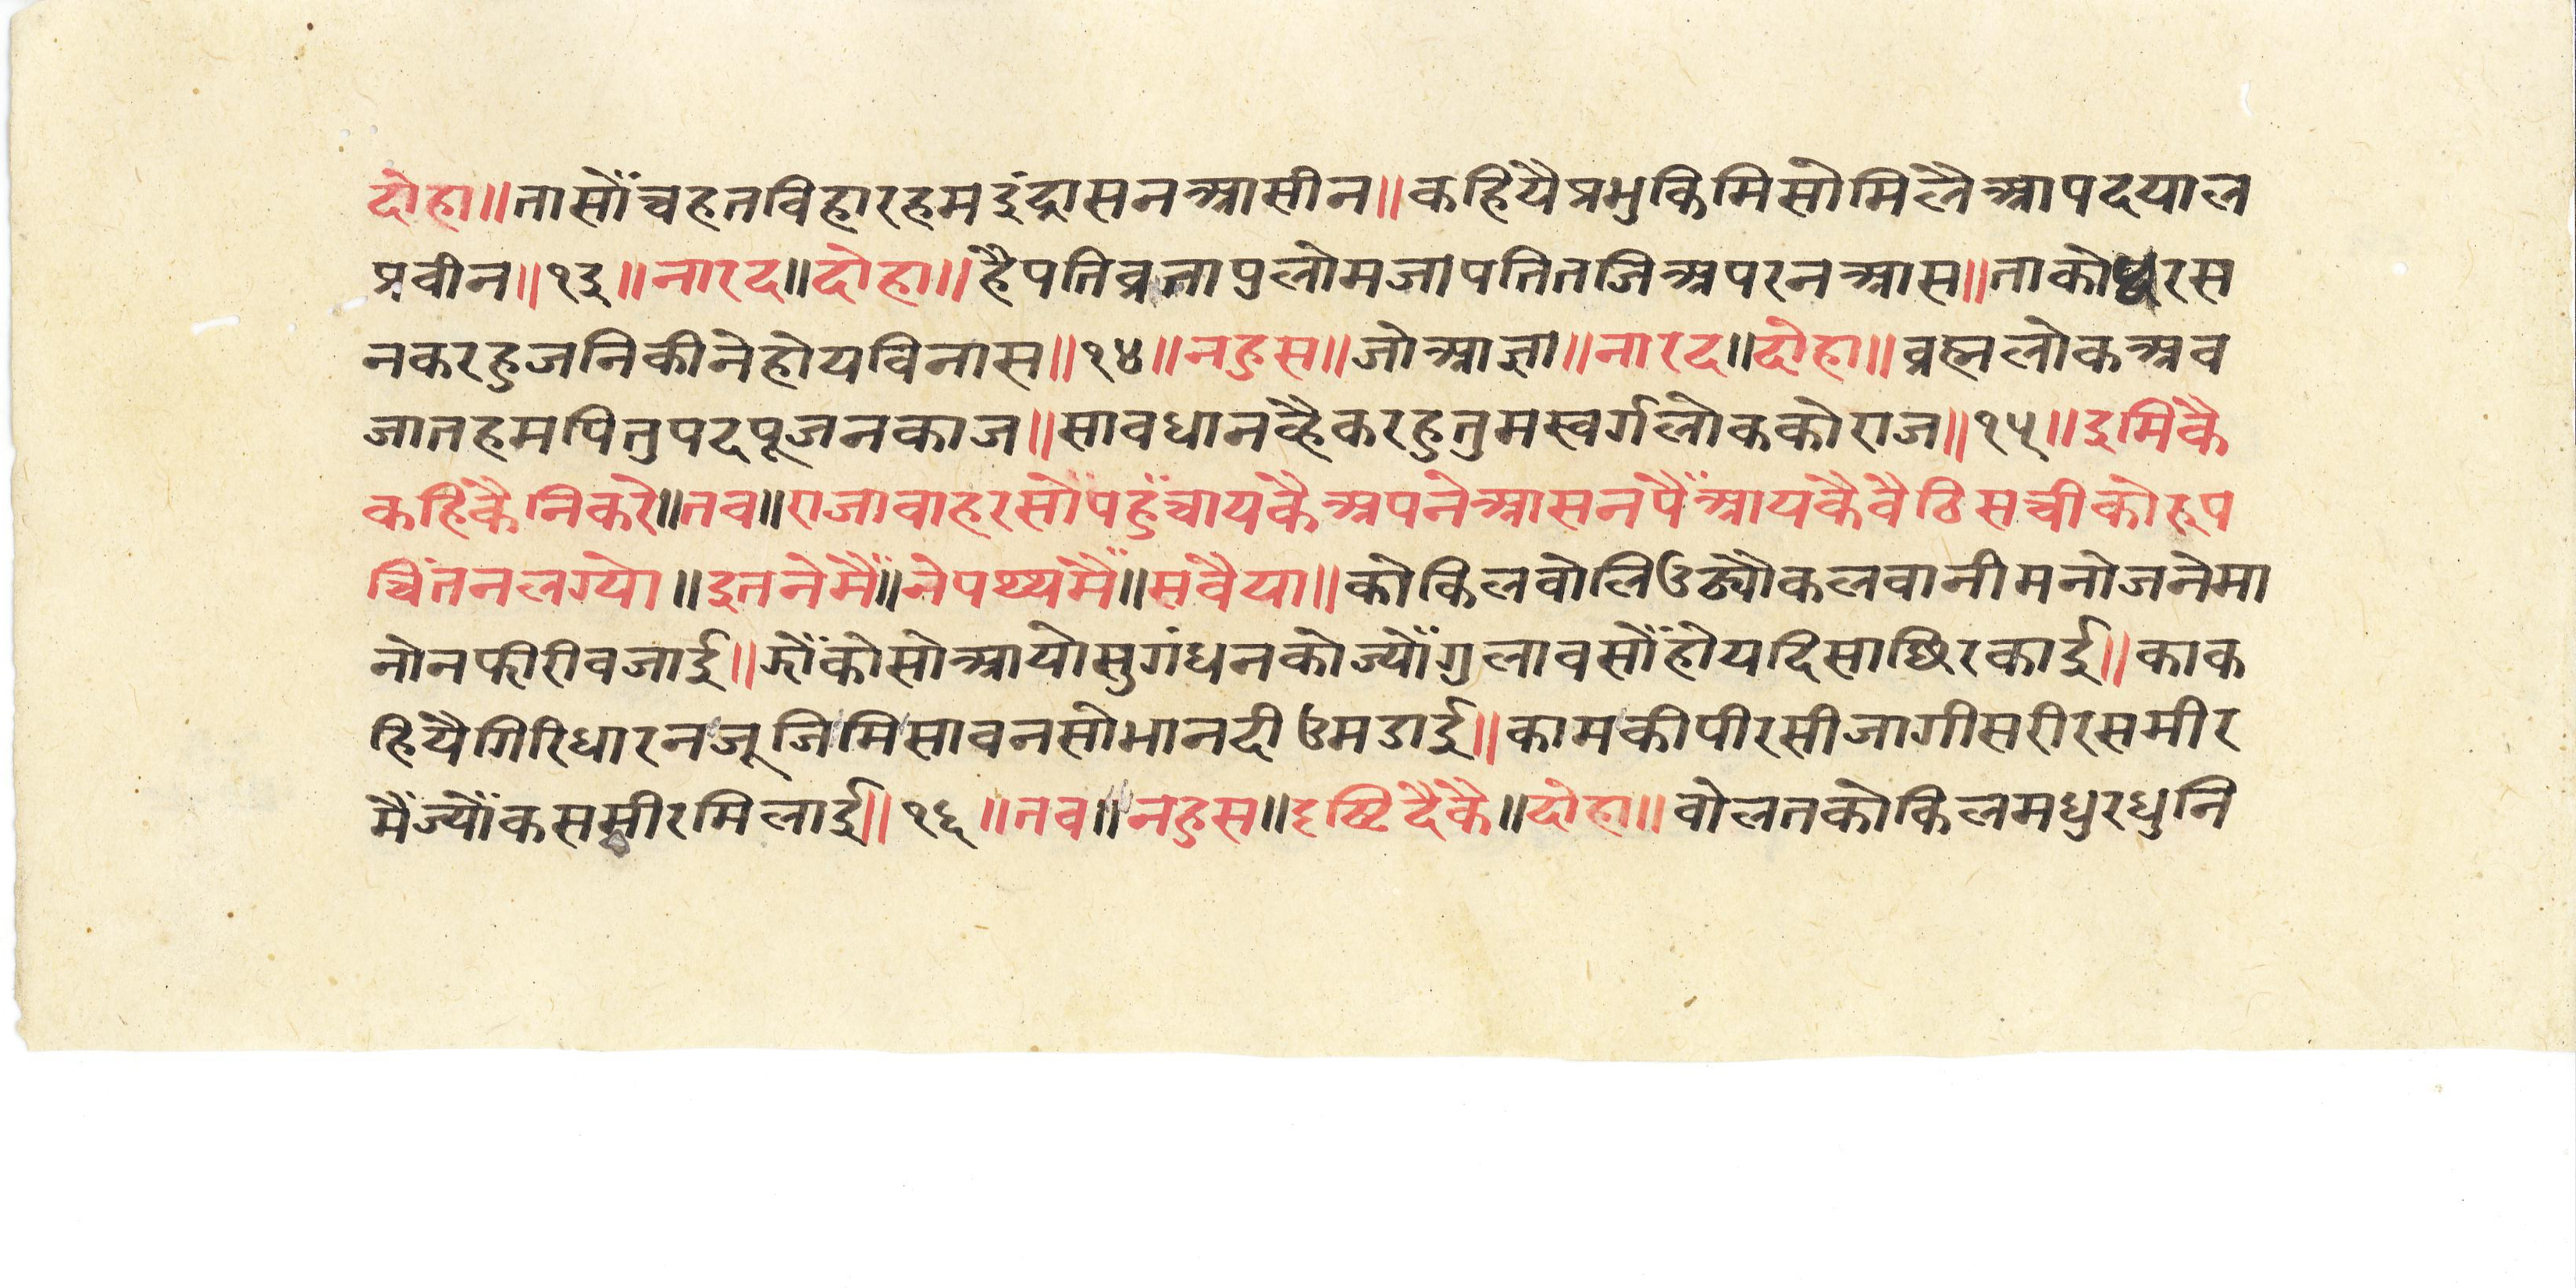 दोहा॥तासोंचहतविहारहमइंद्रासनआसीन॥कहियैप्रभुकिमिसोमिलैआपदयाल
प्रवीन॥१३॥नारद॥दोहा॥हैपतिव्रतापुलोमजापतितजिअपरनआस॥ताको रस
नकरहुजनिकीनेहोयविनास॥१४॥नहुस॥जोआज्ञा॥नारद॥दोहा॥व्रह्मलोकअव
जातहमपितुपदपूजनकाज॥सावधानव्हैकरहुतुमस्वर्गलोककोराज॥१५॥इमिकै
कहिकैनिकरे॥तव॥राजावाहरसोंपहुंचायकैअपनेआसनपैंआयकैवैठिसचीकोरूप
चिंतनलग्यो॥इतनेमैं॥नेपथ्यमैं॥सवैया॥कोकिलवोलिउठ्यौकलवानीमनोजनेमा
नोनफीरीवजाई॥झोंकोसोआयोसुगंधनकोज्योंगुलावसोंहोयदिसाछिरकाई॥काक
हियैगिरिधारनजूजिमिसावनसोभानदीउमडाई॥कामकीपीरसीजागीसरीरसमीर
मैंज्योंकसमीरमिलाई॥१६॥तव॥नहुस॥दृष्टिदैकै॥दोहा॥वोलतकोकिलमधुरधुनि